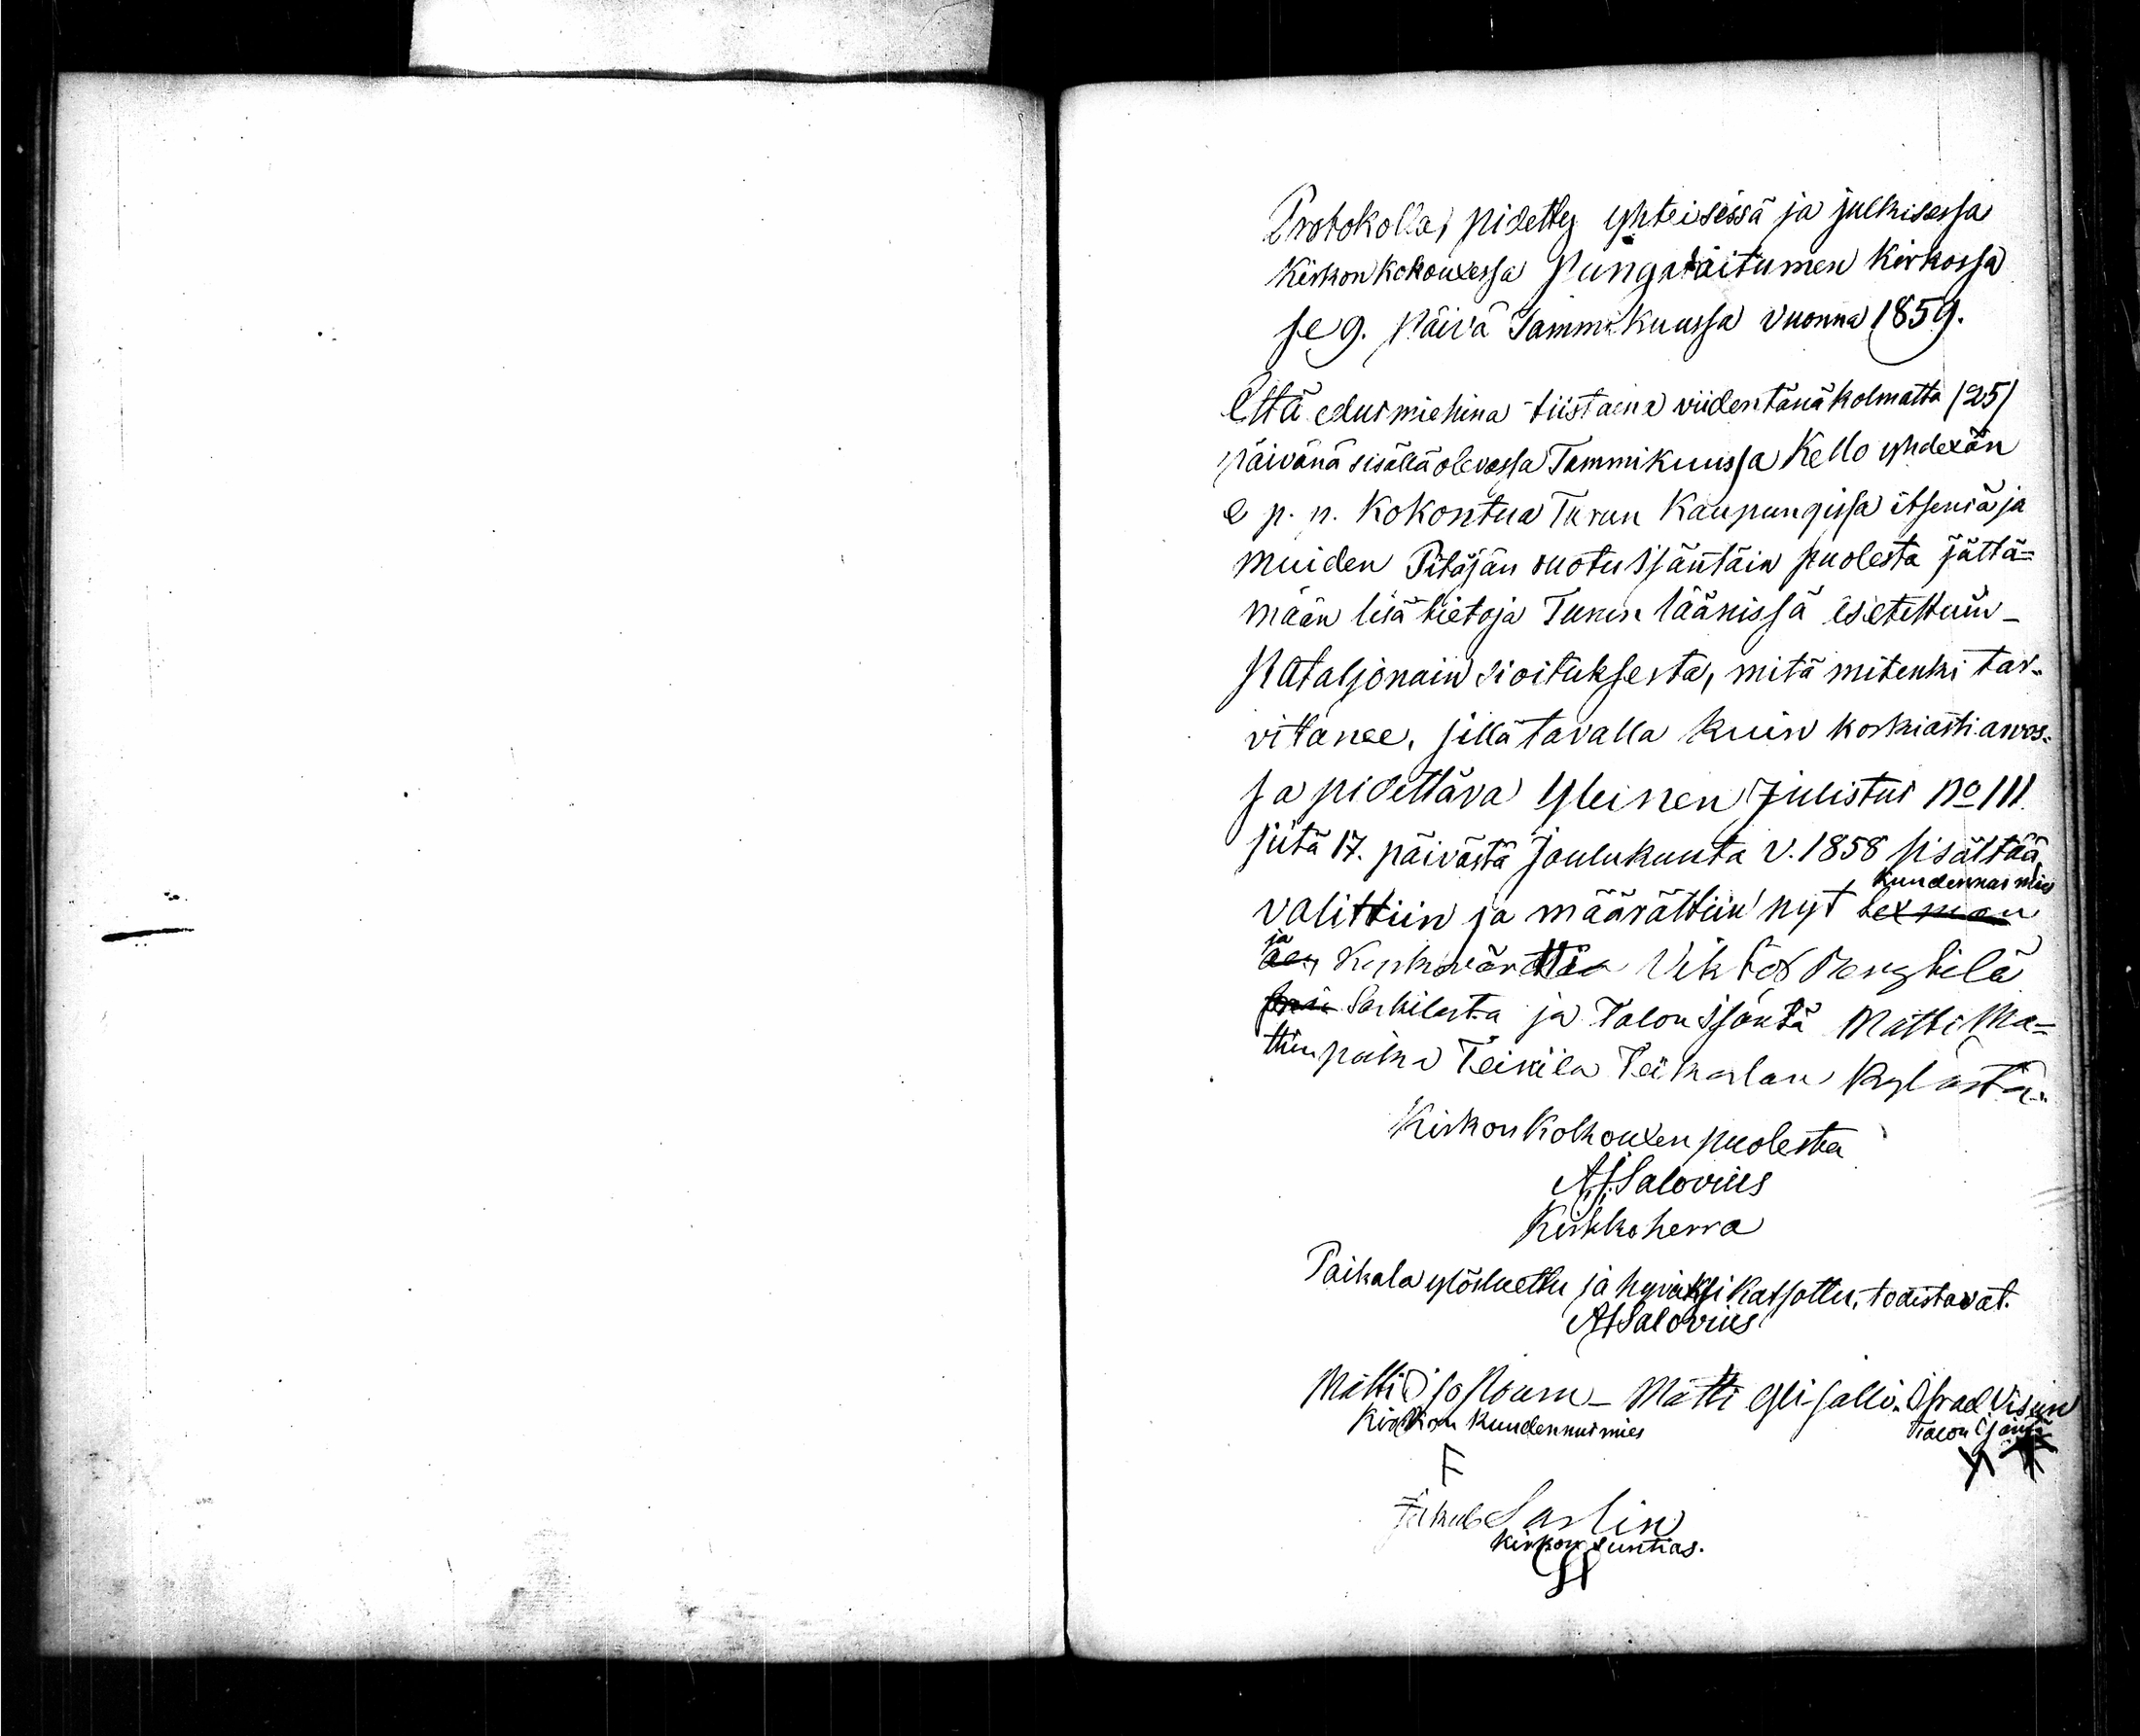 Protokolla, pidetty yhteisessä ja julkisessa
Kirkonkokouxessa Pungalaitumen Kirkossa
se 9. Päivä Tammikuussa vuonna 1859.
Että edusmiehinä tiistaina viidentänäkolmatta (25)
päivänä sisälläolevassa Tammikuussa Kello yhdexän
e p. p. Kokontua Turun Kaupungissa itsensä ja
muiden Pitäjän ruotu Isäntäin puolesta jättä=
mään lisä tietoja Turun läänissä esitettuin
Pataljonain sioituksesta, mitä mitenki tar-
vitanee, sillä tavalla kuin korkiasti arvos-
sa pidettävä Yleinen Julistus No 111
siitä 17. päivästä Joulukuuta v. 1858 sisältää,
valittiin ja määrättiin nyt Kuudennusmies
ja Viktor
Sarkilasta ja Talon Isäntä Matti Ma=
thinpoika Teikilä Teikarlan Kylästä.
Kirkon Kokouxen puolesta
AJSalovius
Kirkkoherra
Paikala ylösluettu ja hyväksi katsottu, todistavat.
AJSalovius
Matti Matti Yli-Salli. Israel
Kirkon Kuudennusmies Talon Isäntä
F
Jakub Sarlin
Kirkon suntias.